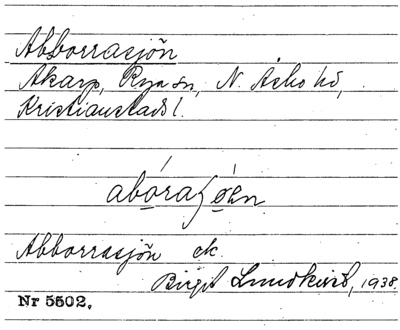 Abborrasjön
Akarp, Rya sn, N. Åsbo hd,
Kristianstads l.
abórasʃø̀en
Abborrasjön ek.
Birgit Lundkvist, 1938.
Nr 5502.